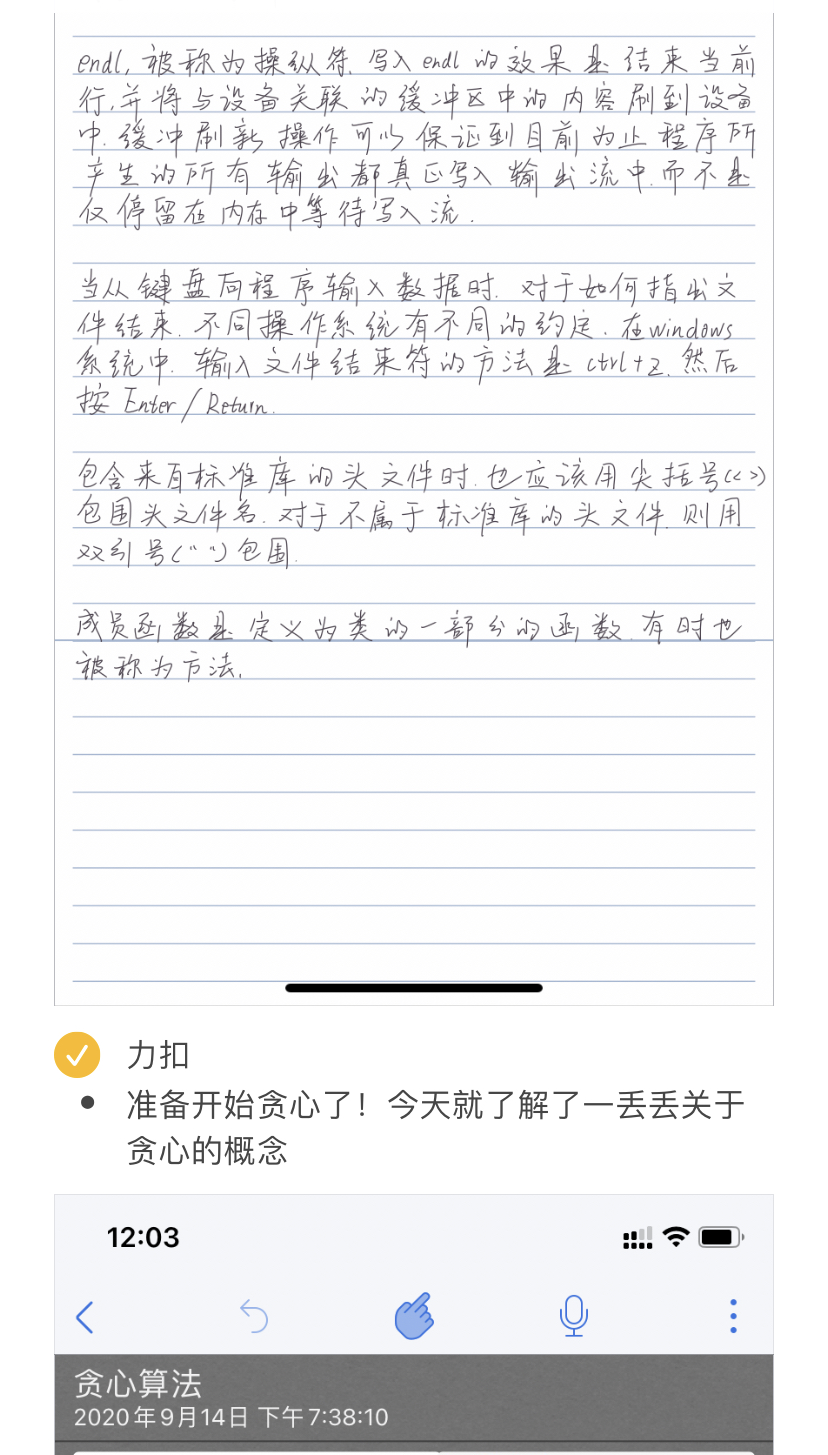 endl,被称为操纵符.写入endl的效果是结束当前
行,并将与设备关联的缓冲区中的内容刷到设备
中.缓冲刷新操作可以保证到目前为止程序所
产生的所有输出都真正写入输出流中.而不是
仅停留在内存中等待写入流.
当从键盘向程序输入数据时.对于如何指出文
件结束.不同操作系统有不同的约定.在windows
系统中.输入文件结束符的方法是ctrl+z.然后
按Enter/Return.
包含来自标准库的头文件时.也应该用尖括号(< >)
包围头文件名.对于不属于标准库的头文件.则用
双引号(" ")包围.
成员函数是定义为类的一部分的函数.有时也
被称为方法.
力扣
准备开始贪心了!今天就了解了一丢丢关于
贪心的概念
12:03
贪心算法
2020年9月14日 下午7:38:10